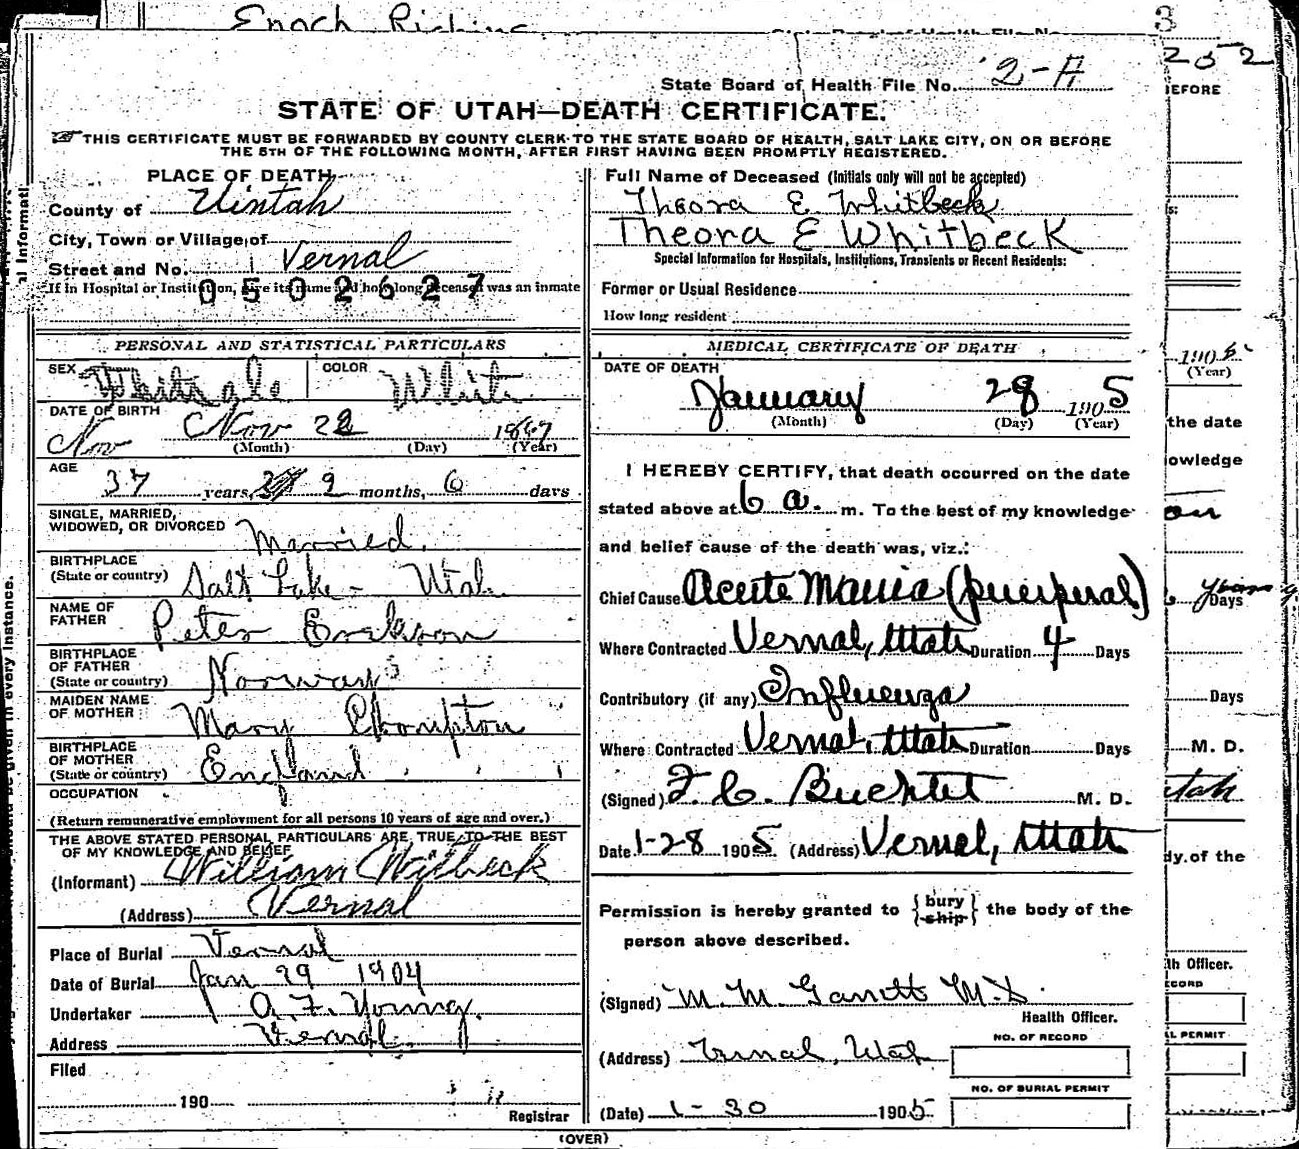 Enoch
3
252
State Board of Health File No. 2-A
STATE OF UTAH—DEATH CERTIFICATE.
THIS CERTIFICATE MUST BE FORWARDED BY COUNTY CLERK TO THE STATE BOARD OF HEALTH, SALT LAKE CITY, ON OR BEFORE
THE 5TH OF THE FOLLOWING MONTH, AFTER FIRST HAVING BEEN PROMPTLY REGISTERED.
PLACE OF DEATH
County of Uintah
City, Town or Village of
Street and No. Vernal
If in Hospital or Institution, give its name and how long deceased was an inmate
0502627
PERSONAL AND STATISTICAL PARTICULARS
SEX COLOR White
DATE OF BIRTH
Nov Nov 22 1867
(Month) (Day) (Year)
AGE
37 years, 2 months, 6 days
SINGLE, MARRIED,
WIDOWED, OR DIVORCED Married.
BIRTHPLACE
(State or country) Salt Lake - Utah
NAME OF
FATHER Peter Erickson
BIRTHPLACE
OF FATHER
(State or country) Norway
MAIDEN NAME
OF MOTHER Mary
BIRTHPLACE
OF MOTHER
(State or country) England
OCCUPATION
(Return remunerative employment for all persons 10 years of age and over.)
THE ABOVE STATED PERSONAL PARTICULARS ARE TRUE TO THE BEST
OF MY KNOWLEDGE AND BELIEF
(Informant) William Witbeck
(Address) Vernal
Place of Burial Vernal
Date of Burial Jan 29 1904
Undertaker A. F. Young.
Address Vernal.
Filed
190
Registrar
(OVER)
Full Name of Deceased (Initials only will not be accepted)
Theora E Whitbeck
Theora E Whitbeck
Special Information for Hospitals, Institutions, Transients or Recent Residents:
Former or Usual Residence
How long resident
MEDICAL CERTIFICATE OF DEATH
DATE OF DEATH
January 28 1905
(Month) (Day) (Year)
I HEREBY CERTIFY, that death occurred on the date
stated above at 6 a. m. To the best of my knowledge
and belief cause of the death was, viz.:
Chief Cause Acute Mania (puerperal)
Where Contracted Vernal, Utah Duration 4 Days
Contributory (if any) Influenza
Where Contracted Vernal, Utah Duration Days
(Signed) F. C. M. D.
Date 1-28 1905 (Address) Vernal, Utah
Permission is hereby granted to {bury ship} the body of the
person above described.
(Signed) M. M. M.D.
Health Officer.
(Address) Vernal, Utah
NO. OF RECORD
NO. OF BURIAL PERMIT
(Date) 1-30 1905
EFORE
(Year)
the date
owledge
Days
Days
M. D.
dy of the
th Officer.
CORD
L PERMIT